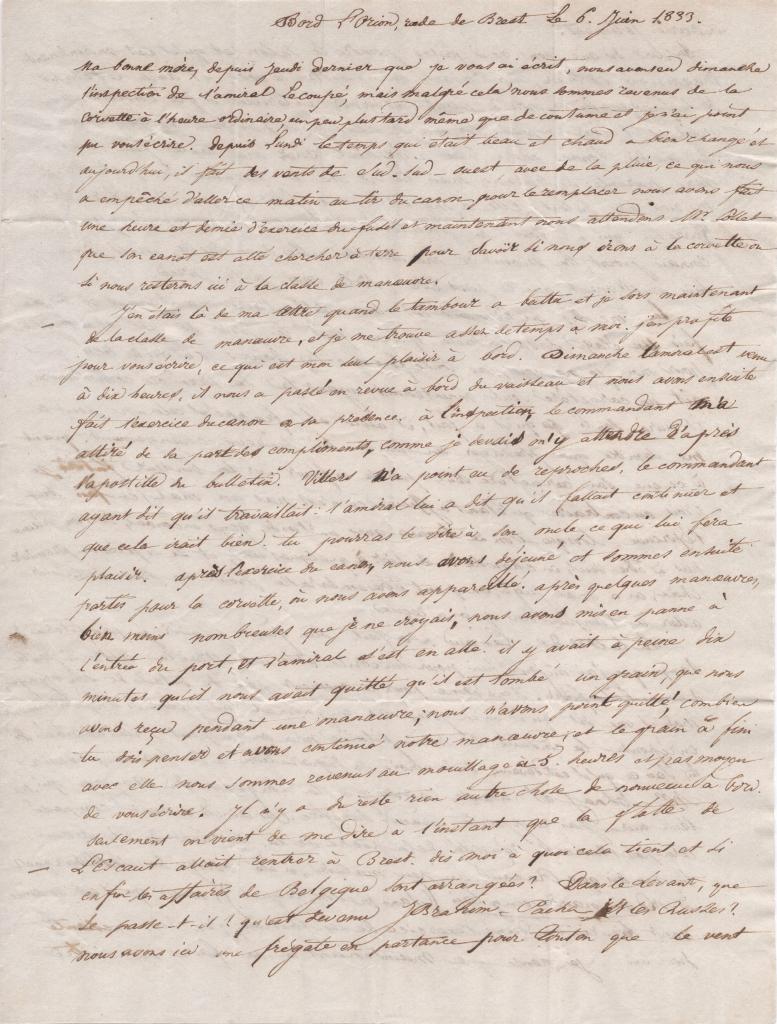 Bord L'Orion, rade de Brest Le 6. Juin 1833.
Ma bonne mère, depuis jeudi dernier que je vous ai écrit, nous avons eu dimanche
l'inspection de l'amiral Lecoupé, mais malgré cela nous sommes revenus de la
corvette à l'heure ordinaire, un peu plus tard même que de coutume et je n'ai point
pu vous écrire. depuis Lundi le temps qui était beau et chaud a bien changé et
aujourd'hui, il fait des vents de Sud-Sud-ouest, avec de la pluie, ce qui nous
a empêché d'aller ce matin au tir du canon, pour le remplacer nous avons fait
une heure et demie d'exercice du fusil et maintenant nous attendons Mr.
que son canot est allé chercher à terre pour savoir si nous irons à la corvette ou
si nous resterons ici à la classe de manœuvre.
J'en étais là de ma lettre quand le tambour a battu et je sors maintenant
de la classe de manœuvre, et je me trouve assez de temps à moi. j'en profite
pour vous écrire, ce qui est mon seul plaisir à bord. Dimanche l'amiral est venu
à dix heures, il nous a passé en revue à bord du vaisseau et nous avons ensuite
fait l'exercice du canon en sa présence. à l'inspection, le commandant m'a
attiré de sa part des compliments, comme je devais m'y attendre d'après
l'apostille du bulletin. Villers n'a point eu de reproches. le commandant
ayant dit qu'il travaillait: l'amiral lui a dit qu'il fallait continuer et
que cela irait bien. tu pourras le dire à son oncle, ce qui lui fera
plaisir. après l'exercice du canon, nous avons déjeuné et sommes ensuite
partis pour la corvette, où nous avons appareillé. après quelques manœuvres,
bien moins nombreuses que je ne croyais, nous avons mis en panne à
l'entrée du port, et l'amiral s'est en allé. il y avait à peine dix
minutes qu'il nous avait quitté qu'il est tombé un grain, que nous
avons reçu pendant une manœuvre; nous n'avons point quitté, combien
tu dois penser et avons continué notre manœuvre, et le grain a fini
avec elle nous sommes revenus au mouillage à 5. heures et pas moyen
de vous écrire. Il n'y a du reste rien autre chose de nouveau à bord.
seulement on vient de me dire à l'instant que la flotte de
L'Escaut allait rentrer à Brest. dis moi à quoi cela tient et si
enfin les affaires de Belgique sont arrangées? Dans le Levant, que
se passe-t-il? qu'est devenu Ibrahim-Pacha et les Russes?
nous avons ici une frégate en partance pour Toulon que le vent